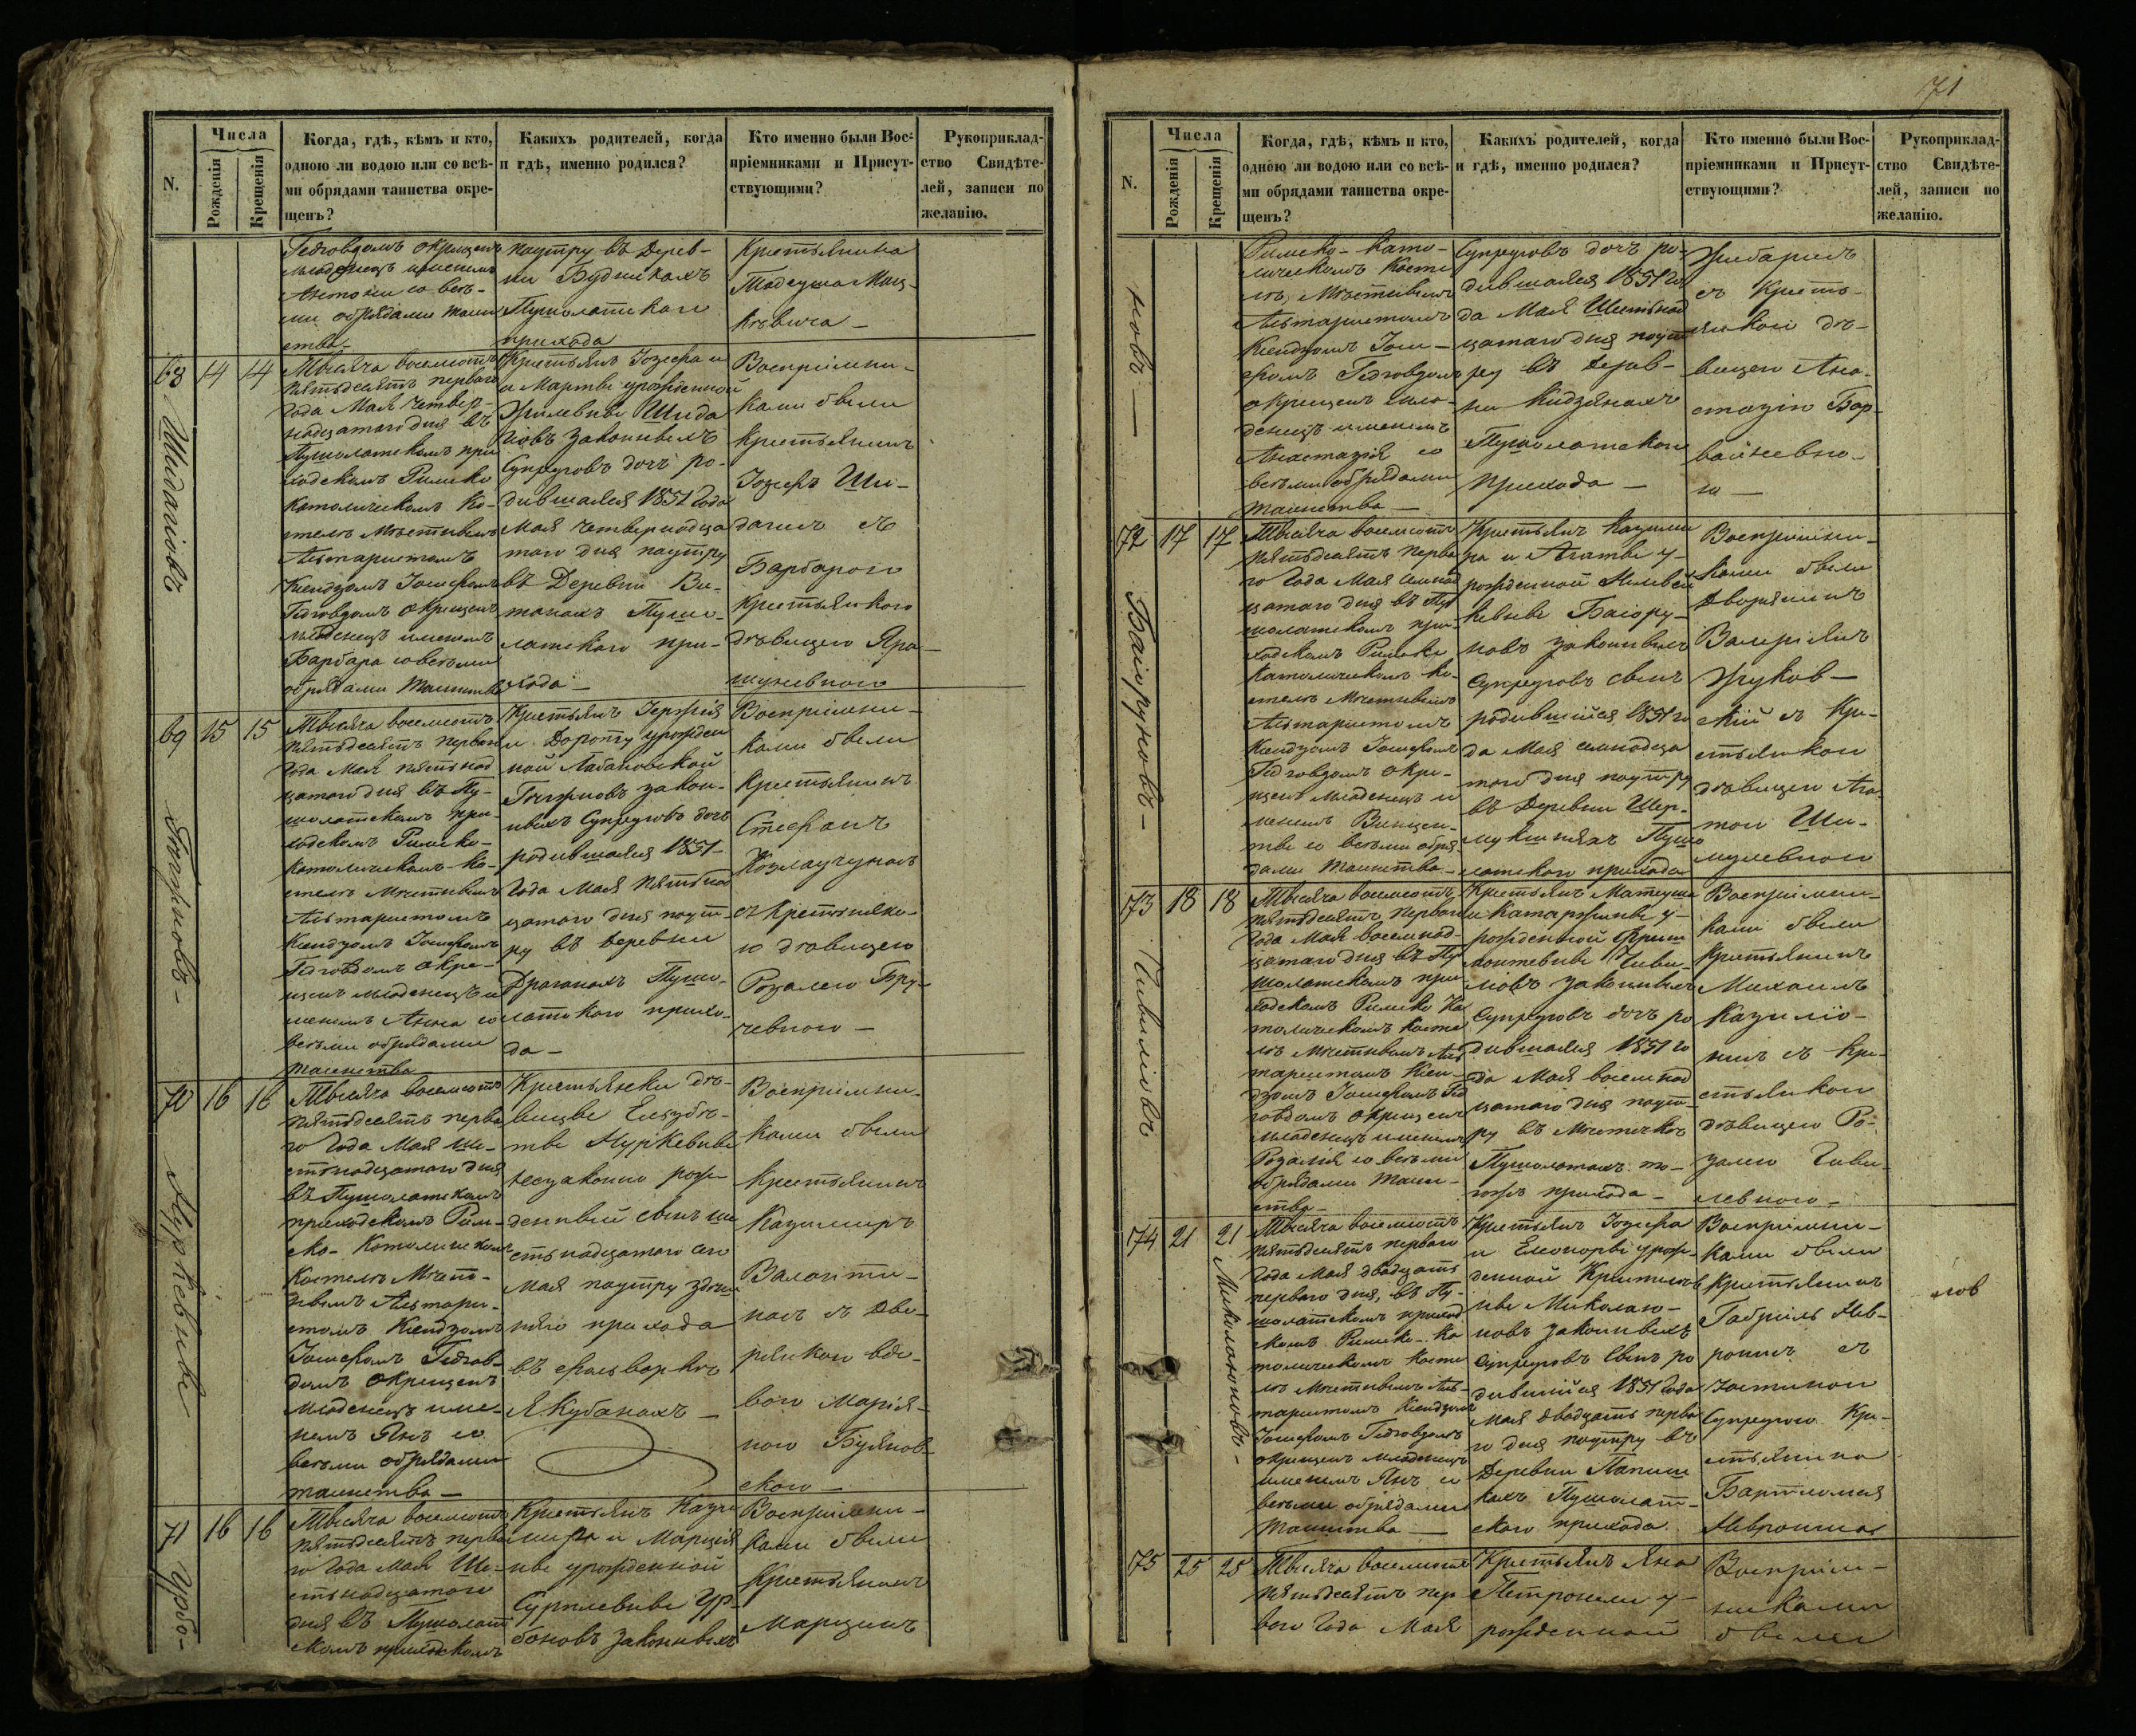 N.
Числа
Рожденія
Крещенія
Когда, гдѣ, кѣмъ и кто,
одною ли водою или со всѣ-
ми обрядами таинства окре-
щенъ?
Какихъ родителей, когда
и гдѣ, именно родился?
Кто именно были Вос-
пріемниками и Присут-
ствующими?
Рукоприклад-
ство Свидѣте-
лей, записи по
желанію.
Гедговдомъ окрещенъ
младенецъ именемъ
Антони со всѣ-
ми обрядами таин
ства.
поутру въ Дерев-
ни Будникахъ
Пушолатскаго
прихода
Крестьянина
Тадеуша Мац-
кѣвича —
68 14 14
Шидагіовъ
Тысяча восемсотъ
пятьдесятъ перваго
года Мая четвер-
надцатаго дня въ
Пушолатскомъ при
ходскомъ Римско
Католическомъ Ко-
стелѣ Мѣстнымъ
Альтаристомъ
Ксендзомъ Іосифомъ
Гедговдомъ окрещенъ
младенецъ именемъ
Барбара со всѣми
обрядами таинства
Крестьянъ Іозефа и
и Марты урожденной
Жилевны Шида
гіовъ законныхъ
Супруговъ дочь ро-
дившаяся 1851 года
Мая четвернадца
таго дня поутру
въ Деревни Ви-
тонахъ Пушо-
латскаго при-
хода —
Воспріемни-
ками были
Крестьянинъ
Іозефъ Ши-
дагисъ съ
Барбарою
Крестьянкою
дѣвицею Яра-
шуневною
69 15 15
Гнгжновъ —
Тысяча восемсотъ
пятьдесятъ перваго
года Мая пятьнад
цатаго дня въ Пу-
шолатскомъ при-
ходскомъ Римско-
Католическомъ Ко-
стелѣ Мѣстнымъ
Альтаристомъ
Ксендзомъ Іосифомъ
Гедговдомъ окре-
щенъ младенецъ и
менемъ Анна со
всѣми обрядами
таинства
Крестьянъ Іержія
и Дороты урожден
ной Лабановской
законныхъ Супруговъ дочь
родившаяся 1851-
года Мая пятьнад
цатаго дня поут-
ру въ Деревни
Драганахъ Пушо-
латскаго прихо-
да —
Воспріемни-
ками были
Крестьянинъ
Стефанъ
Козлаучунасъ
съ Крестьянко-
ю дѣвицею
Розалею Бру-
чевною —
70 16 16
Нуркѣвны
Тысяча восемсотъ
пятьдесятъ перва
го года Мая ше-
стьнадцатаго дня
въ Пушолатскомъ
приходскомъ Рим-
ско- Католическомъ
Костелѣ Мѣст-
нымъ Альтари-
стомъ Ксендзомъ
Іосифомъ Гедгов-
домъ окрещенъ
младенецъ име-
немъ Янъ со
всѣми обрядами
таинства —
Крестьянки дѣ-
вицы Ельзубѣ-
ты Нуркевны
незаконно рож-
денный сынъ ше
стьнадцатаго сего
Мая поутру здѣш
няго прихода
въ фольваркѣ
Якубанахъ —
Воспріемни-
ками были
Крестьянинъ
Казимиръ
Валенти-
насъ съ Дво-
рянкою вдо-
вою Марія-
ною Буянов-
скою —
71 16 16
Урбо-
Тысяча восемсотъ
пятьдесятъ перва
го года Мая Ше-
стьнадцатаго
дня въ Пушолат
скомъ приходскомъ
Крестьянъ Кази
мира и Марція
нны урожденной
Сурплевны Ур-
боновъ законныхъ
Воспріемни-
ками были
Крестьянинъ
Марцинъ
71
N.
Числа
Рожденія
Крещенія
Когда, гдѣ, кѣмъ и кто,
одною ли водою или со всѣ-
ми обрядами таинства окре-
щенъ?
Какихъ родителей, когда
и гдѣ, именно родился?
Кто именно были Вос-
пріемниками и Присут-
ствующими?
Рукоприклад-
ство Свидѣте-
лей, записи по
желанію.
новъ —
Римско- Като-
лическомъ Косте
лѣ, Мѣстнымъ
Альтаристомъ
Ксендзомъ Іоси-
фомъ Гедговдомъ
окрещенъ мла-
денецъ именемъ
Анастазія со
всѣми обрядами
таинства —
Супруговъ дочь ро-
дившаяся 1851 го
да Мая Шестьнад
цатаго дня поут
ру въ Дерев-
ни Кидзянахъ
Пушолатскаго
Прихода —
съ Кресть-
янкою дѣ-
вицею Ана-
стазіею Бор-
вайневно-
ю —
72 17 17
Баіоруновъ —
Тысяча восемсотъ
пятьдесятъ перва
го года Мая семнад
цатаго дня въ Пу
шолатскомъ при-
ходскомъ Римско
Католическомъ Ко-
стелѣ Мѣстнымъ
Альтаристомъ
Ксендзомъ Іосифомъ
Гедговдомъ окре-
щенъ младенецъ и
менемъ Винцен-
ты со всѣми обря
дами таинства —
Крестьянъ Казими
ра и Агаты у-
рожденной
Баіору-
новъ законныхъ
Супруговъ сынъ
родившійся 1851 го
да Мая семнадца
таго дня поутру
въ Деревни Шер-
мукшняхъ Пушо
латскаго прихода
Воспріемни-
ками были
Дворянинъ
Валеріянъ
Жуков-
скій съ Кре-
стьянкою
дѣвицею Ага-
тою Ши-
мулевною
73 18 18
Чивиліовъ
Тысяча восемсотъ
пятьдесятъ перваго
года Мая восемнад-
цатаго дня въ Пу
шолатскомъ при-
ходскомъ Римско Ка
толическомъ Косте
лѣ Мѣстнымъ Аль
таристомъ Ксен-
дзомъ Іосифомъ Гед
говдомъ окрещенъ
младенецъ именемъ
Розалія со всѣми
обрядами таин-
ства —
Крестьянъ Матеуша
и Катаржины у-
рожденной Криш
Чиви-
ліовъ законныхъ
Супруговъ дочь ро
дившаяся 1851 го
да Мая восемнад
цатаго дня поут-
ру въ Мѣстечкѣ
Пушолатахъ то-
гожъ прихода —
Воспріемни-
ками были
Крестьянинъ
Михаилъ
съ Кре-
стьянкою
дѣвицею Ро-
залею Чиви-
левною —
74 21 21
Миколаюновъ —
Тысяча восемсотъ
пятьдесятъ перваго
года Мая двадцать
перваго дня, въ Пу-
шолатскомъ приход
скомъ Римско- Ка
толическомъ Косте
лѣ Мѣстнымъ Аль-
таристомъ Ксендзомъ
Іосифомъ Гедговдомъ
окрещенъ младенецъ
именемъ Янъ со
всѣми обрядами
таинства —
Крестьянъ Іозефа
и Елеоноры урож-
денной
Миколаю-
новъ законныхъ
Супруговъ сынъ ро
дившійся 1851 года
Мая двадцать перва
го дня поутру въ
Деревни Папиш
кахъ Пушолат-
скаго прихода.
Воспріемни-
ками были
Крестьянинъ
Габріель
съ
Юстиною
Супругою Кре-
стьянина
Бартломея
75 25 25
Тысяча восемсотъ
пятьдесятъ пер-
ваго года Мая
Крестьянъ Яна
Петронели у-
рожденной
Воспріем-
никами
были